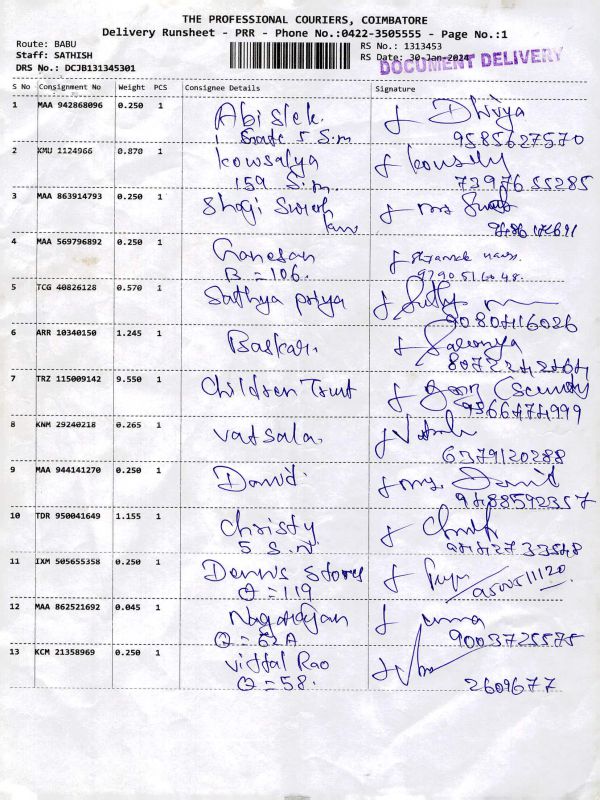 THE PROFESSIONAL COURIERS, COIMBATORE
Delivery Runsheet - PRR - Phone No.:0422-3505555 - Page No.:1
Route: BABU
RS No.: 1313453
Staff: SATHISH
RS Date: 30-Jan-2024
DRS No.: DCJB131345301
DOCUMENT DELIVERY
S No Consignment No Weight PCS Consignee Details Signature
1 MAA 942868096 0.250 1 Abishek. Dhivya
5 S.m 9585627570
2 KMU 1124966 0.870 1 Kowsalya
159 S.m. 7397655285
3 MAA 863914793 0.250 1 Shogi
4 MAA 569796892 0.250 1 Ganesan
B = 106.
5 TCG 40826128 0.570 1 Sathya priya
9080416026
6 ARR 10340150 1.245 1 Baskar. Saranya
7 TRZ 115009142 9.550 1 Children Trust
9566474999
8 KNM 29240218 0.265 1 vatsala.
6379120288
9 MAA 944141270 0.250 1 David. mrs. David
9488592357
10 TDR 950041649 1.155 1 Christy
11 IXM 505655358 0.250 1 Dennis Stores
O = 119
12 MAA 862521692 0.045 1 Nagarajan uma
O = 62A 9003725575
13 KCM 21358969 0.250 1 Vittal Rao
O = 58. 2609677